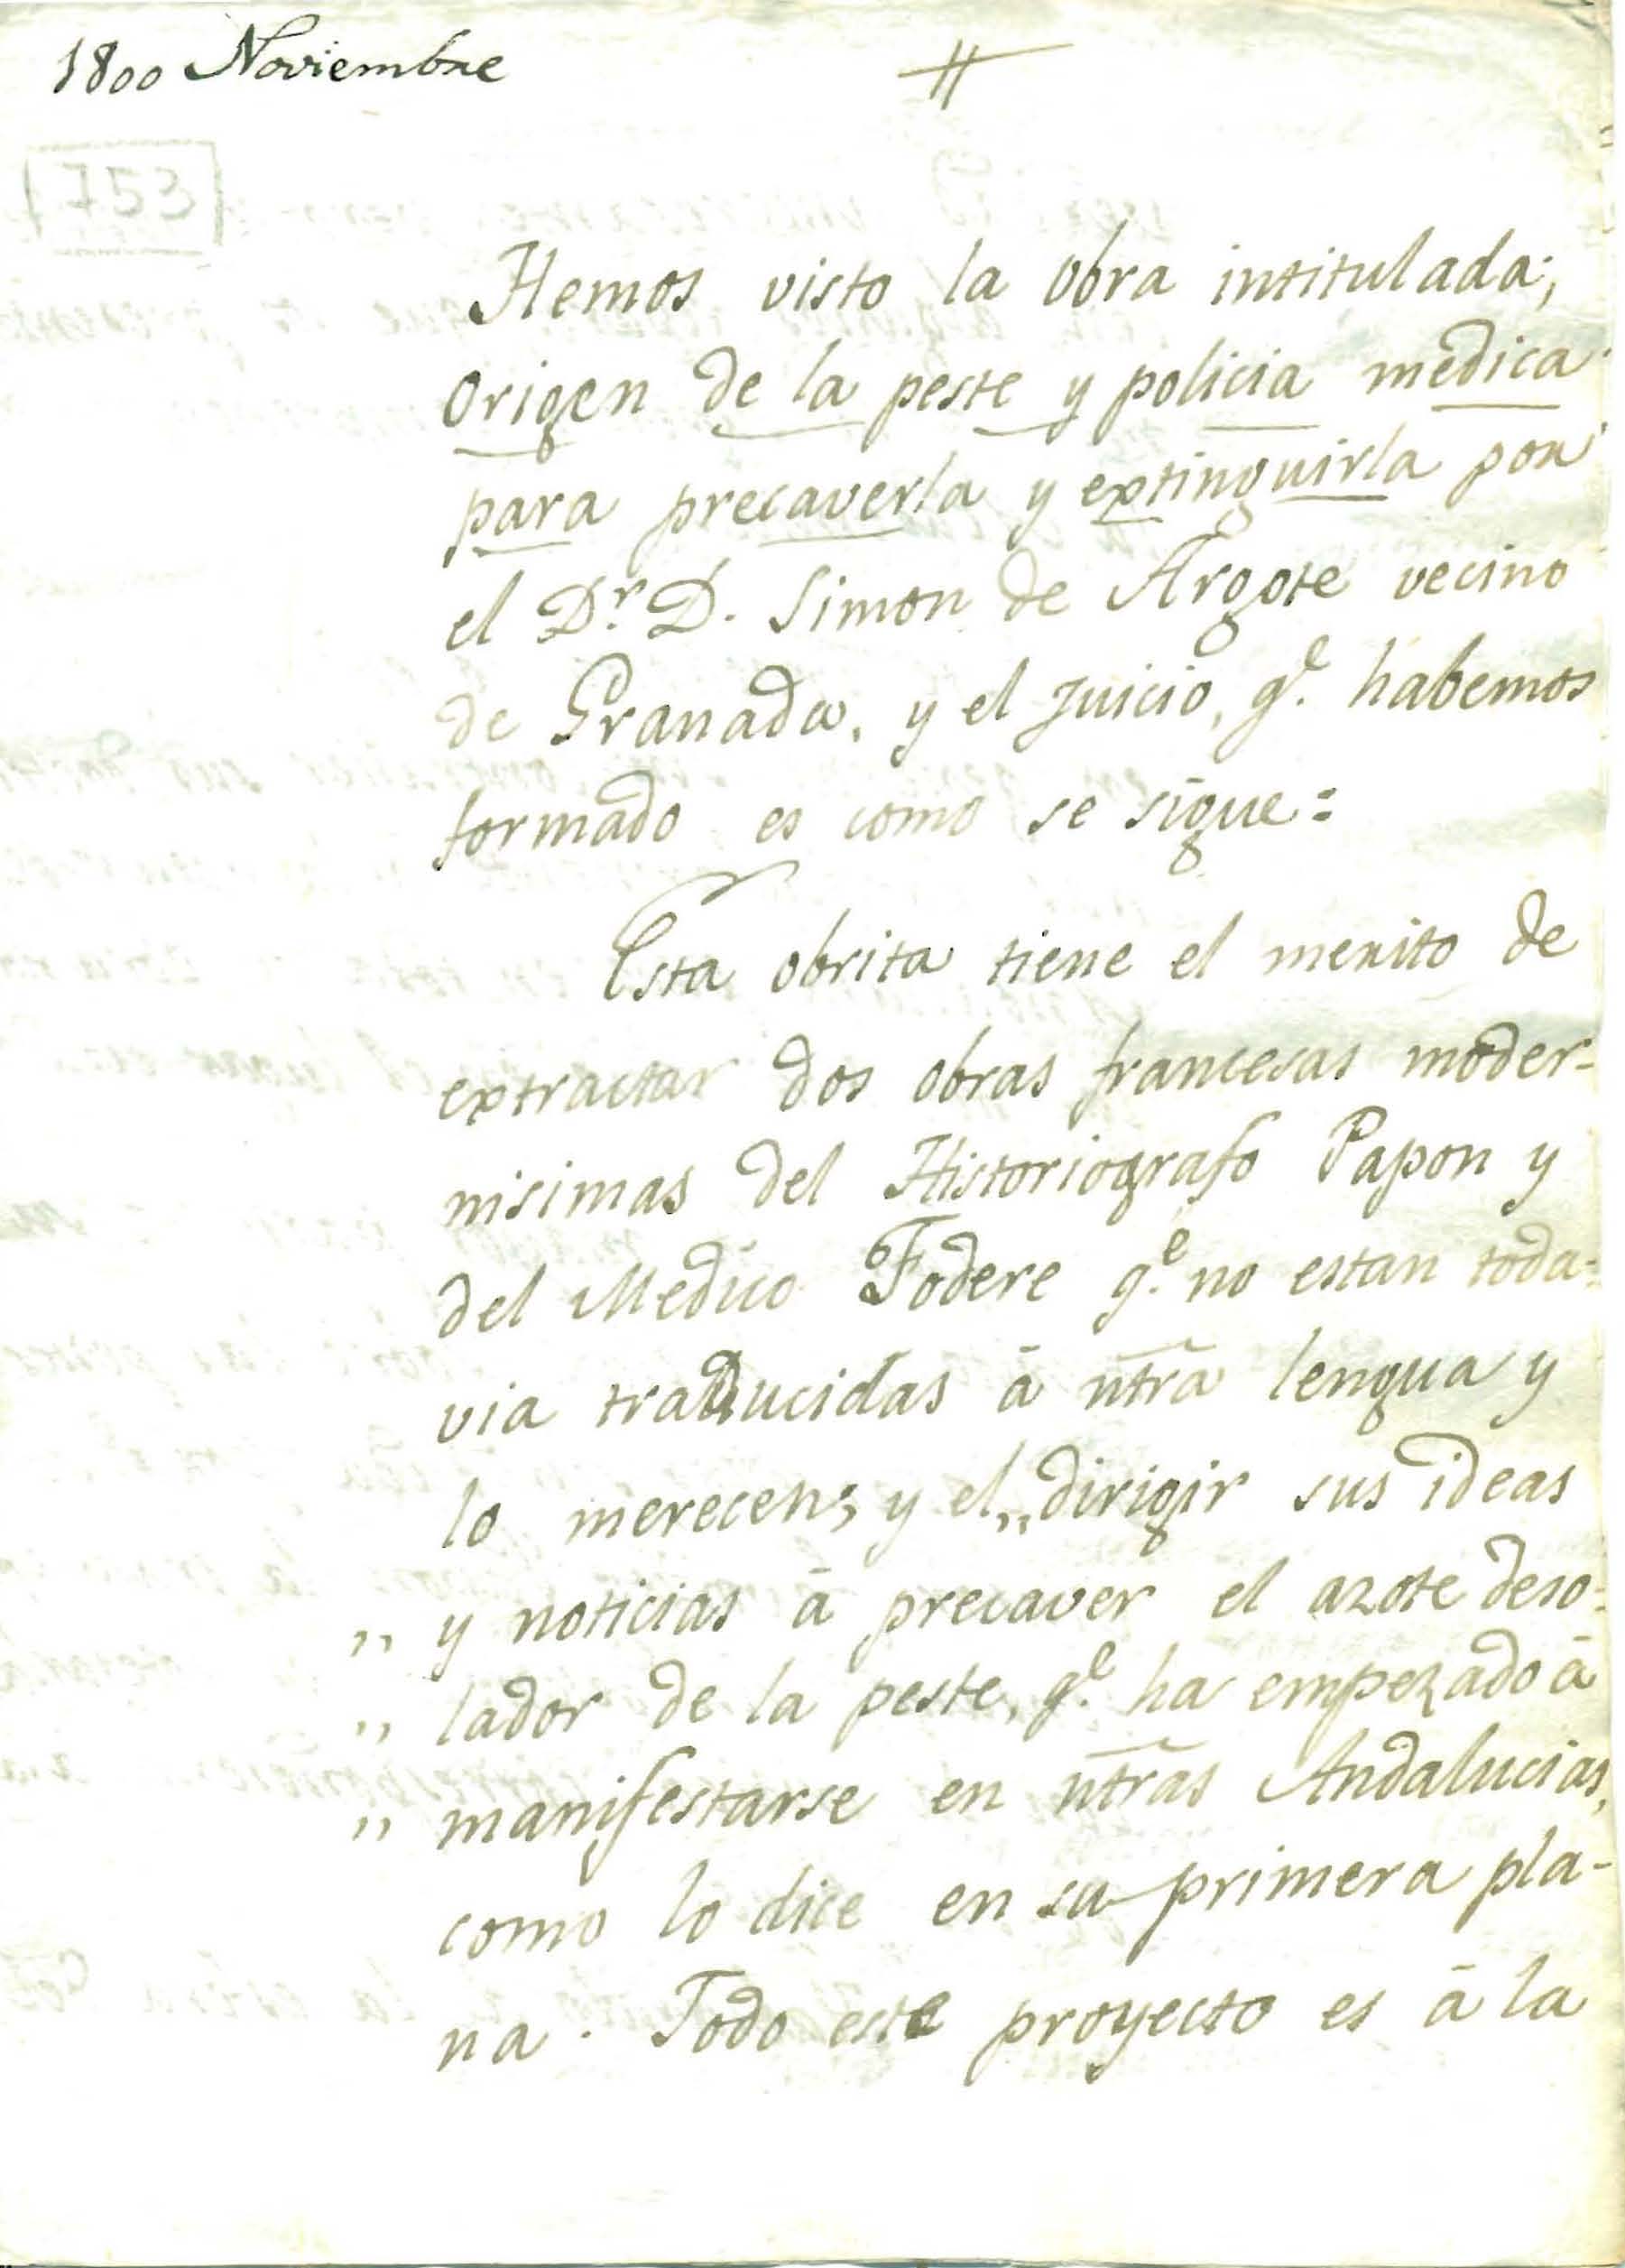 1800 Noviembre
753
Hemos visto la obra intitulada;
origen de la peste y policia medica
para precaverla y extinguirla por
el Dr. D. Simon de Argote vecino
de Granada, y el juicio, qe. habemos
formado es como se sigue:
Esta obrita tiene el merito de
extractar dos obras francesas moder-
nisimas del Historiografo Papon y
del Medico Fodere qe. no estan toda-
via traducidas á ntra lengua y
lo merecen; y el „dirigir sus ideas
„ y noticias á precaver el azote deso-
„ lador de la peste, qe. ha empezado á
„ manifestarse en ntras Andalucias,
como lo dice en su primera pla-
na. Todo este proyecto es á la